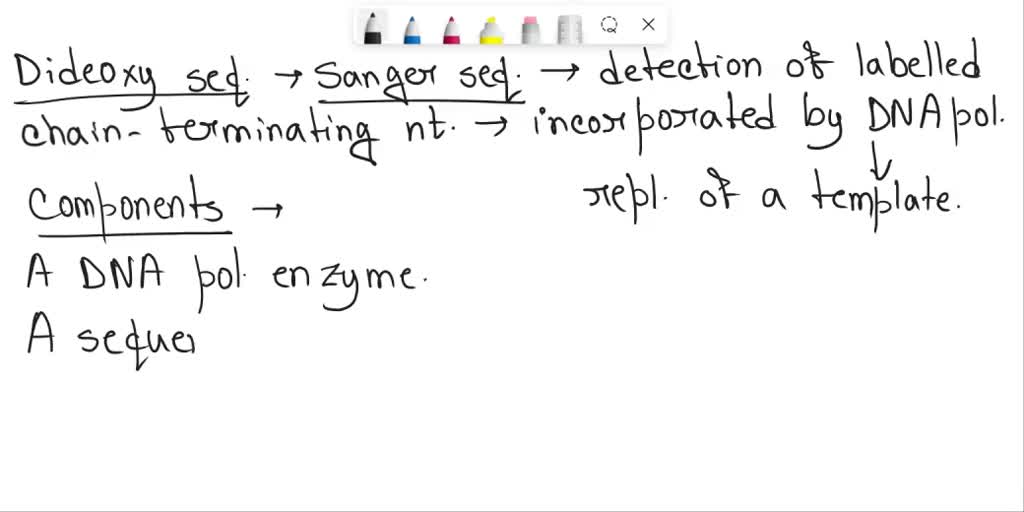 Dideoxy seq. → Sanger seq. → detection of labelled
chain-terminating nt. → incorporated by DNA pol.
↓
Components → repl. of a template.
A DNA pol. enzyme.
A sequen